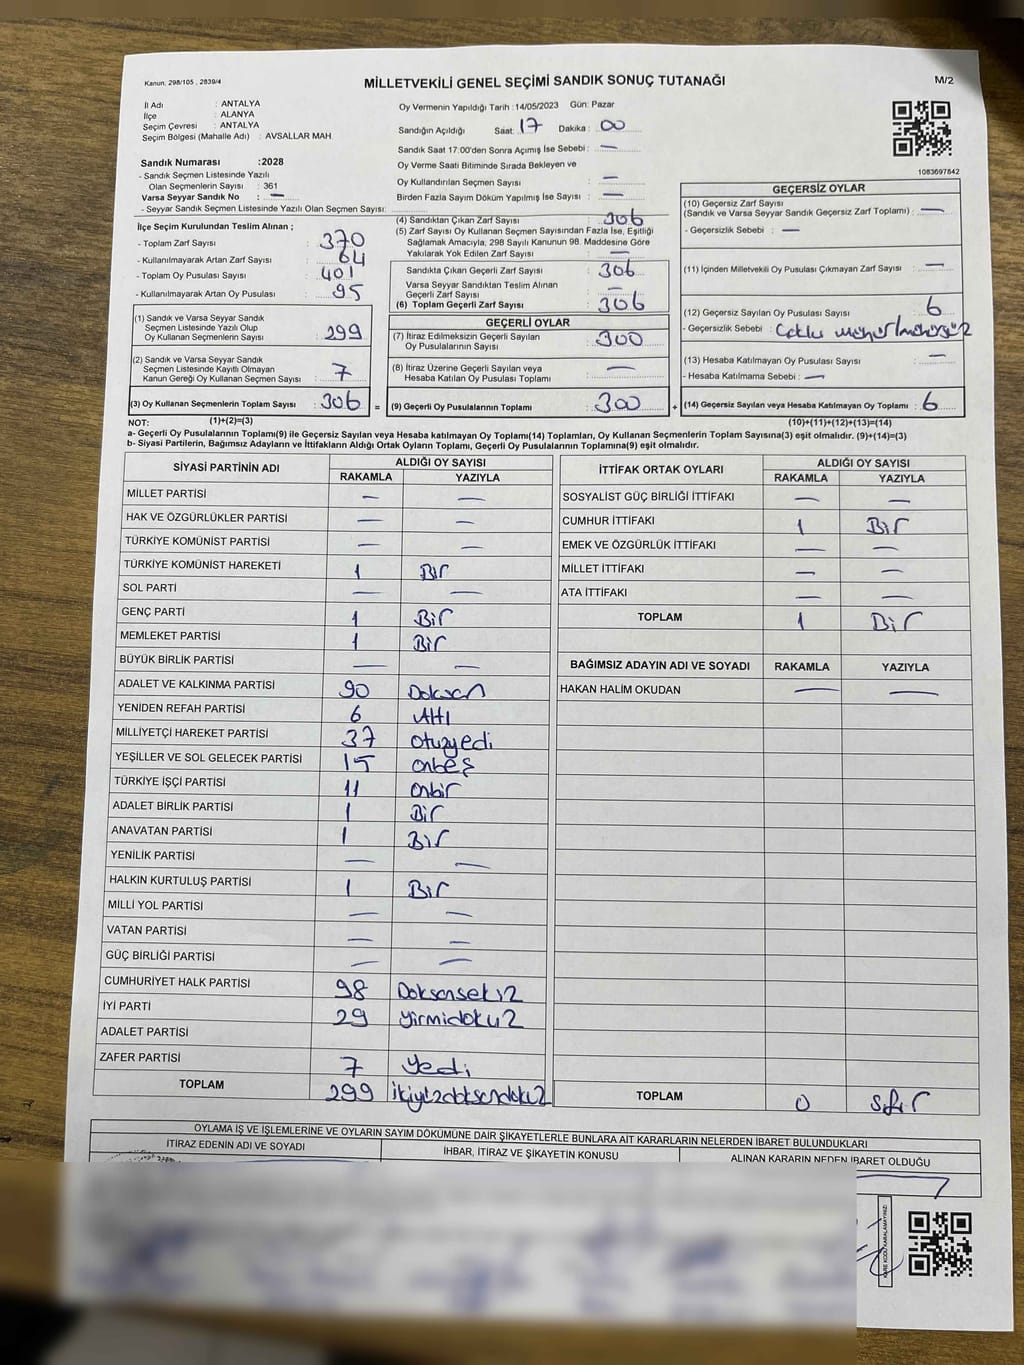 Kanun. 298/105 , 2839/4
MİLLETVEKİLİ GENEL SEÇİMİ SANDIK SONUÇ TUTANAĞI
M/2
İl Adı : ANTALYA
İlçe : ALANYA
Seçim Çevresi : ANTALYA
Seçim Bölgesi (Mahalle Adı) : AVSALLAR MAH.
Sandık Numarası :2028
- Sandık Seçmen Listesinde Yazılı
Olan Seçmenlerin Sayısı : 361
Varsa Seyyar Sandık No : —
- Seyyar Sandık Seçmen Listesinde Yazılı Olan Seçmen Sayısı:
Oy Vermenin Yapıldığı Tarih :14/05/2023 Gün: Pazar
Sandığın Açıldığı Saat: 17 Dakika : 00
Sandık Saat 17:00'den Sonra Açımış İse Sebebi : —
Oy Verme Saati Bitiminde Sırada Bekleyen ve
Oy Kullandırılan Seçmen Sayısı : —
Birden Fazla Sayım Döküm Yapılmış İse Sayısı : —
1083697842
İlçe Seçim Kurulundan Teslim Alınan ;
- Toplam Zarf Sayısı : 370
- Kullanılmayarak Artan Zarf Sayısı : 64
- Toplam Oy Pusulası Sayısı : 401
- Kullanılmayarak Artan Oy Pusulası : 95
(1) Sandık ve Varsa Seyyar Sandık
Seçmen Listesinde Yazılı Olup
Oy Kullanan Seçmenlerin Sayısı : 299
(2) Sandık ve Varsa Seyyar Sandık
Seçmen Listesinde Kayıtlı Olmayan
Kanun Gereği Oy Kullanan Seçmen Sayısı : 7
(3) Oy Kullanan Seçmenlerin Toplam Sayısı : 306 =
(1)+(2)=(3)
(4) Sandıktan Çıkan Zarf Sayısı : 306
(5) Zarf Sayısı Oy Kullanan Seçmen Sayısından Fazla İse, Eşitliği
Sağlamak Amacıyla, 298 Sayılı Kanunun 98. Maddesine Göre
Yakılarak Yok Edilen Zarf Sayısı : —
Sandıkta Çıkan Geçerli Zarf Sayısı : 306
Varsa Seyyar Sandıktan Teslim Alınan
Geçerli Zarf Sayısı : —
(6) Toplam Geçerli Zarf Sayısı : 306
GEÇERLİ OYLAR
(7) İtiraz Edilmeksizin Geçerli Sayılan
Oy Pusulalarının Sayısı : 300
(8) İtiraz Üzerine Geçerli Sayılan veya
Hesaba Katılan Oy Pusulası Toplamı : —
(9) Geçerli Oy Pusulalarının Toplamı : 300 +
GEÇERSİZ OYLAR
(10) Geçersiz Zarf Sayısı
(Sandık ve Varsa Seyyar Sandık Geçersiz Zarf Toplamı) : —
- Geçersizlik Sebebi : —
(11) İçinden Milletvekili Oy Pusulası Çıkmayan Zarf Sayısı : —
(12) Geçersiz Sayılan Oy Pusulası Sayısı : 6
- Geçersizlik Sebebi :
(13) Hesaba Katılmayan Oy Pusulası Sayısı : —
- Hesaba Katılmama Sebebi : —
(14) Geçersiz Sayılan veya Hesaba Katılmayan Oy Toplamı : 6
(10)+(11)+(12)+(13)=(14)
NOT:
a- Geçerli Oy Pusulalarının Toplamı(9) ile Geçersiz Sayılan veya Hesaba katılmayan Oy Toplamı(14) Toplamları, Oy Kullanan Seçmenlerin Toplam Sayısına(3) eşit olmalıdır. (9)+(14)=(3)
b- Siyasi Partilerin, Bağımsız Adayların ve İttifakların Aldığı Ortak Oyların Toplamı, Geçerli Oy Pusulalarının Toplamına(9) eşit olmalıdır.
SİYASİ PARTİNİN ADI ALDIĞI OY SAYISI
RAKAMLA YAZIYLA
MİLLET PARTİSİ — —
HAK VE ÖZGÜRLÜKLER PARTİSİ — —
TÜRKİYE KOMÜNİST PARTİSİ — —
TÜRKİYE KOMÜNİST HAREKETİ 1 Bir
SOL PARTİ — —
GENÇ PARTİ 1 Bir
MEMLEKET PARTİSİ 1 Bir
BÜYÜK BİRLİK PARTİSİ — —
ADALET VE KALKINMA PARTİSİ 90 Doksan
YENİDEN REFAH PARTİSİ 6 Altı
MİLLİYETÇİ HAREKET PARTİSİ 37 otuzyedi
YEŞİLLER VE SOL GELECEK PARTİSİ 15 onbeş
TÜRKİYE İŞÇİ PARTİSİ 11 onbir
ADALET BİRLİK PARTİSİ 1 Bir
ANAVATAN PARTİSİ 1 Bir
YENİLİK PARTİSİ — —
HALKIN KURTULUŞ PARTİSİ 1 Bir
MİLLİ YOL PARTİSİ — —
VATAN PARTİSİ — —
GÜÇ BİRLİĞİ PARTİSİ — —
CUMHURİYET HALK PARTİSİ 98 Doksansekiz
İYİ PARTİ 29 yirmidokuz
ADALET PARTİSİ
ZAFER PARTİSİ 7 yedi
TOPLAM 299 ikiyüzdoksandokuz
İTTİFAK ORTAK OYLARI ALDIĞI OY SAYISI
RAKAMLA YAZIYLA
SOSYALİST GÜÇ BİRLİĞİ İTTİFAKI — —
CUMHUR İTTİFAKI 1 Bir
EMEK VE ÖZGÜRLÜK İTTİFAKI — —
MİLLET İTTİFAKI — —
ATA İTTİFAKI — —
TOPLAM 1 Bir
BAĞIMSIZ ADAYIN ADI VE SOYADI RAKAMLA YAZIYLA
HAKAN HALİM OKUDAN — —
TOPLAM 0 Sıfır
OYLAMA İŞ VE İŞLEMLERİNE VE OYLARIN SAYIM DÖKÜMÜNE DAİR ŞİKAYETLERLE BUNLARA AİT KARARLARIN NELERDEN İBARET BULUNDUKLARI
İTİRAZ EDENİN ADI VE SOYADI İHBAR, İTİRAZ VE ŞİKAYETİN KONUSU ALINAN KARARIN NEDEN İBARET OLDUĞU
KARE KODU KARALAMAYINIZ!